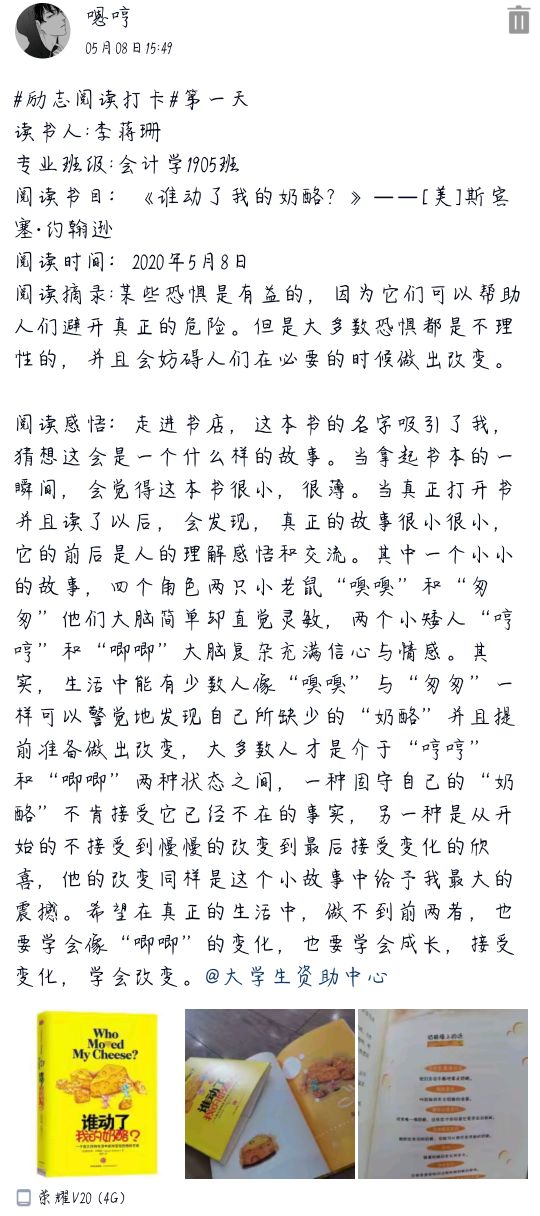 嗯哼
05月08日 15:49
#励志阅读打卡#第一天
读书人:李蒋珊
专业班级:会计学1905班
阅读书目：《谁动了我的奶酪？》——[美]斯宾
塞·约翰逊
阅读时间：2020年5月8日
阅读摘录:某些恐惧是有益的，因为它们可以帮助
人们避开真正的危险。但是大多数恐惧都是不理
性的，并且会妨碍人们在必要的时候做出改变。
阅读感悟：走进书店，这本书的名字吸引了我，
猜想这会是一个什么样的故事。当拿起书本的一
瞬间，会觉得这本书很小，很薄。当真正打开书
并且读了以后，会发现，真正的故事很小很小，
它的前后是人的理解感悟和交流。其中一个小小
的故事，四个角色两只小老鼠“嗅嗅”和“匆
匆”他们大脑简单却直觉灵敏，两个小矮人“哼
哼”和“唧唧”大脑复杂充满信心与情感。其
实，生活中能有少数人像“嗅嗅”与“匆匆”一
样可以警觉地发现自己所缺少的“奶酪”并且提
前准备做出改变，大多数人才是介于“哼哼”
和“唧唧”两种状态之间，一种固守自己的“奶
酪”不肯接受它已经不在的事实，另一种是从开
始的不接受到慢慢的改变到最后接受变化的欣
喜，他的改变同样是这个小故事中给予我最大的
震撼。希望在真正的生活中，做不到前两者，也
要学会像“唧唧”的变化，也要学会成长，接受
变化，学会改变。@大学生资助中心
Who
Moved
My Cheese?
谁动了
我的奶酪?
谁动了
我的奶酪?
奶酪墙上的话
荣耀V20 (4G)